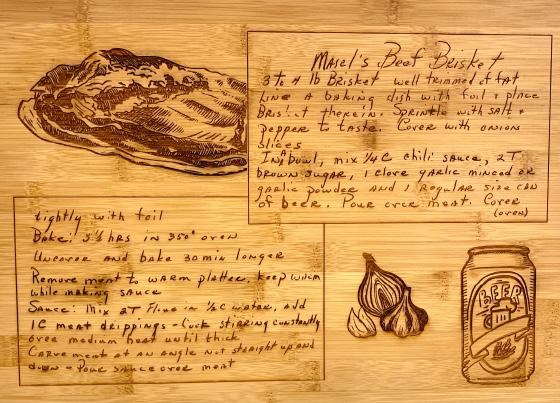 Masel's Beef Brisket
3 to 4 lb Brisket well trimmed of fat
Line a baking dish with foil + place
Brisket therein. Sprinkle with salt +
pepper to taste. Cover with onion
slices
In a bowl, mix 1/4 C chili sauce, 2 T
brown sugar, 1 clove garlic minced or
garlic powder and 1 regular size can
of beer. Pour over meat. Cover
(over)
tightly with foil
Bake: 3 1/2 hrs in 350° oven
Uncover and bake 30 min longer
Remove meat to warm platter, keep warm
while making sauce
Sauce: Mix 2T Flour in 1/2 C water, add
1C meat drippings - Cook stirring constantly
over medium heat until thick
Carve meat at an angle not straight up and
down - Pour sauce over meat
BEER